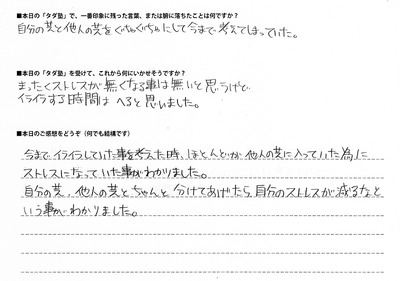 ■本日の「タダ塾」で、一番印象に残った言葉、または腑に落ちたことは何ですか？
自分の芝と他人の芝をぐちゃぐちゃにして今まで考えてしまっていた。
■本日の「タダ塾」を受けて、これから何にいかせそうですか？
まったくストレスが無くなる事は無いと思うけど
イライラする時間は へると思いました。
■本日のご感想をどうぞ（何でも結構です）
今まで イライラしていた事を考えた時、ほとんどが 他人の芝に入っていた為に
ストレスになっていた事がわかりました。
自分の芝、他人の芝とちゃんと 分けてあげたら 自分のストレスが減るなと
いう事がわかりました。